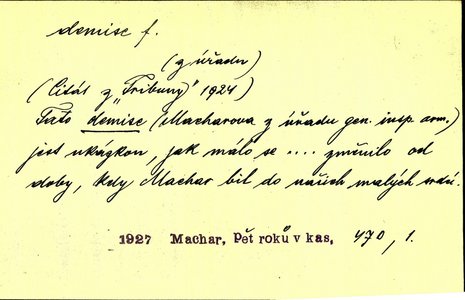 demise f.
(z úřadu)
(Citát z „Tribuny" 1924)
Tato demise (Macharova z úřadu gen. insp. arm.)
jest ukázkou, jak málo se .... změnilo od
doby, kdy Machar bil do našich malých srdcí.
1927 Machar, Pět roků v kas, 470, 1.